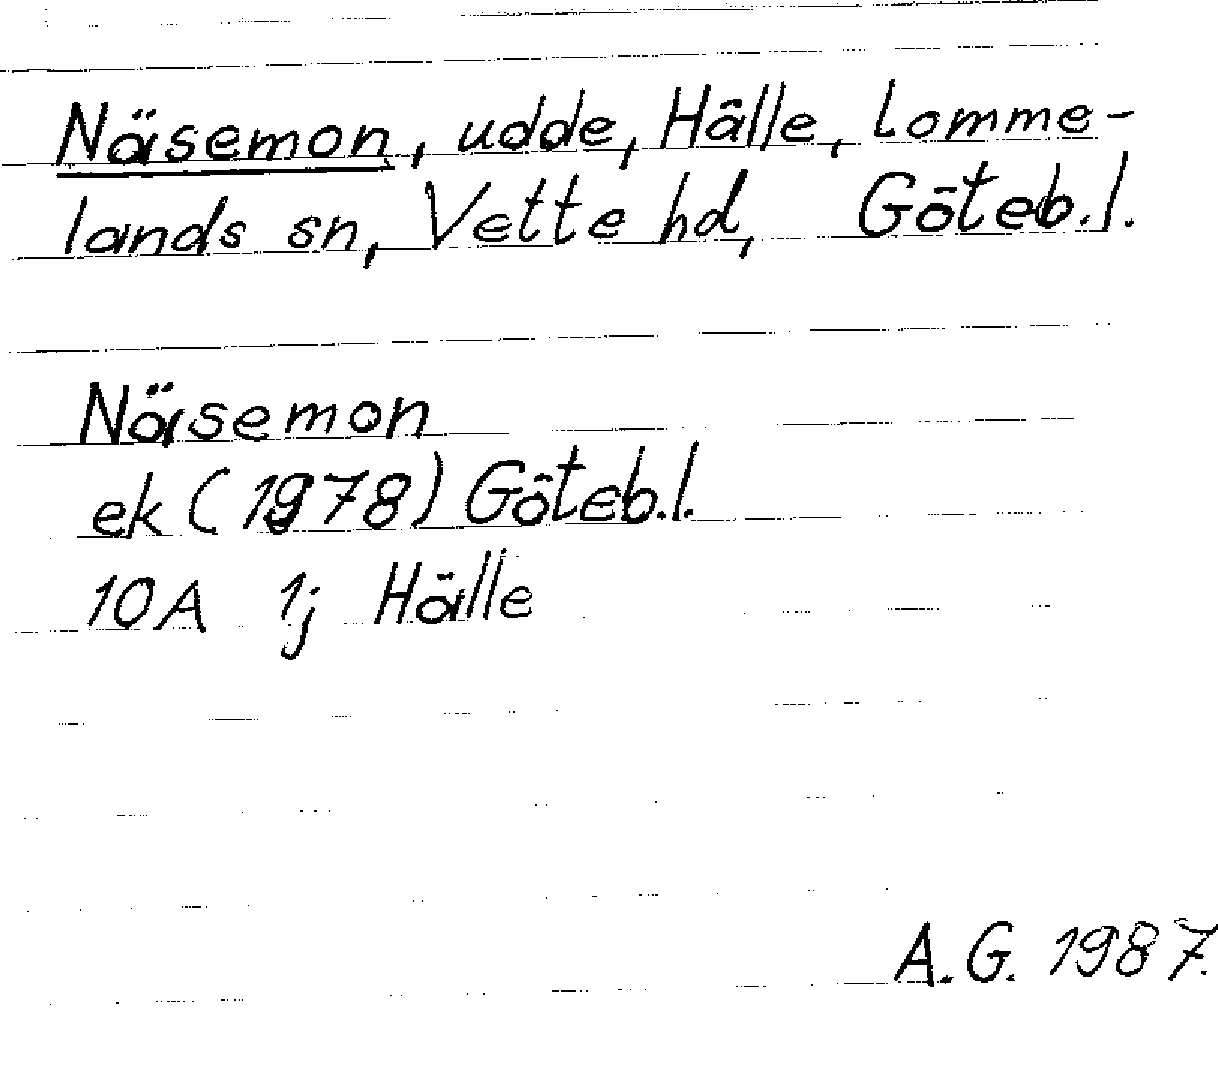 Näsemon, udde, Hälle, Lomme-
lands sn, Vette hd, Göteb.l.
Näsemon
ek (1978) Göteb.l.
10A 1j Hälle
A.G. 1987.